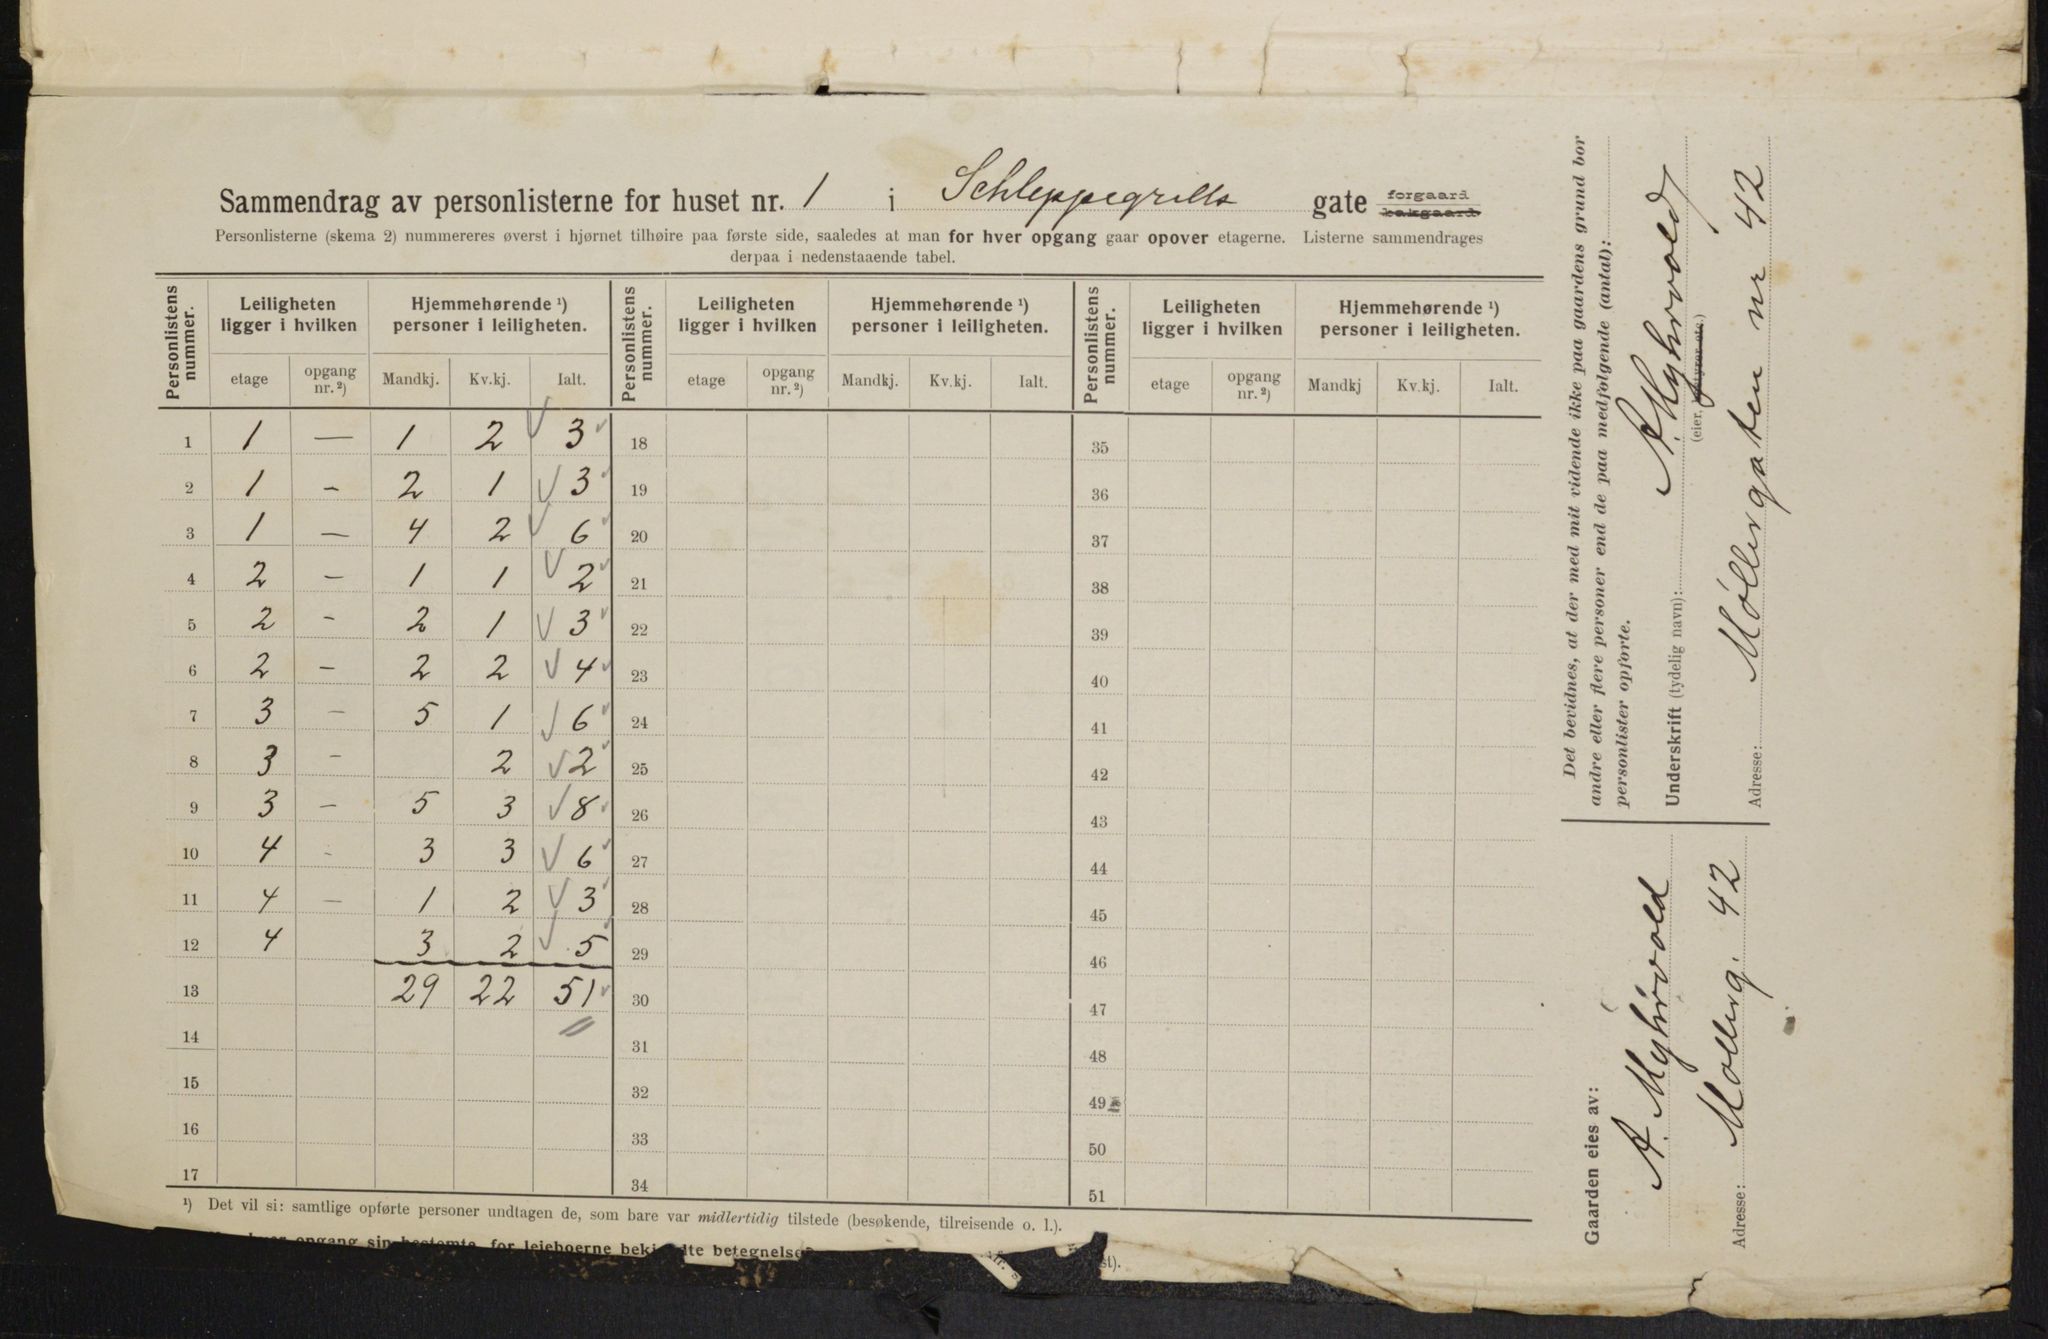 Sammendrag av personlisterne for huset nr. 1 i Schleppegrells gate forgaard bakgaard
Personlisterne (skema 2) nummereres øverst i hjørnet tilhøire paa første side, saaledes at man for hver opgang gaar opover etagerne. Listerne sammendrages
derpaa i nedenstaaende tabel.
Personlistens nummer. Leiligheten ligger i hvilken Hjemmehørende ¹) personer i leiligheten. Personlistens nummer. Leiligheten ligger i hvilken Hjemmehørende ¹) personer i leiligheten. Personlistens nummer. Leiligheten ligger i hvilken Hjemmehørende ¹) personer i leiligheten.
etage opgang nr. ²) Mandkj. Kv.kj. Ialt. etage opgang nr. ²) Mandkj. Kv.kj. Ialt. etage opgang nr. ²) Mandkj Kv.kj. Ialt.
1 1 — 1 2 3 18 35
2 1 — 2 1 3 19 36
3 1 — 4 2 6 20 37
4 2 — 1 1 2 21 38
5 2 — 2 1 3 22 39
6 2 — 2 2 4 23 40
7 3 — 5 1 6 24 41
8 3 — 2 2 25 42
9 3 — 5 3 8 26 43
10 4 - 3 3 6 27 44
11 4 — 1 2 3 28 45
12 4 3 2 5 29 46
13 29 22 51 30 47
14 31 48
15 32 49
16 33 50
17 34 51
¹) Det vil si: samtlige opførte personer undtagen de, som bare var midlertidig tilstede (besøkende, tilreisende o. l.).
opgang sin bestemte, for leieboerne
Det bevidnes, at der med mit vidende ikke paa gaardens grund bor
andre eller flere personer end de paa medfølgende (antal):
personlister opførte.
Underskrift (tydelig navn): A. Myhrvold
(eier, bestyrer etc.)
Adresse: Møllergaten nr 42
Gaarden eies av:
A. Myhrvold
Adresse: Møllerg. 42